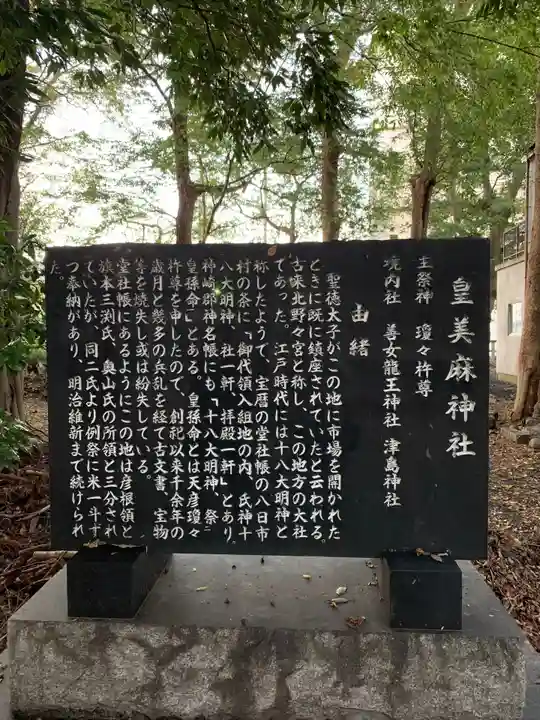 皇美麻神社
主祭神 瓊々杵尊
境内社 善女龍王神社 津島神社
由緒
聖徳太子がこの地に市場を開かれた
ときに既に鎮座されていたと云われる。
古来北野々宮と称し、この地方の大社
であった。江戸時代には十八大明神と
称したようで、宝暦の堂社帳の八日市
村の条に「御代領入組地の内、氏神十
八大明神、社一軒、拝殿一軒」とあり、
神崎郡神名帳にも「十八大明神、祭
皇孫命」とある。皇孫命とは天彦瓊々
杵尊を申したので、創祀以来千余年の
歳月と幾多の兵乱を経て古文書、宝物
等を焼失し或は紛失している。
堂社帳にあるようにこの地は彦根領と
旗本三渕氏、奥山氏の所領と三分され
ていたが、同二氏より例祭に米一斗ず
つ奉納があり、明治維新まで続けられ
た。